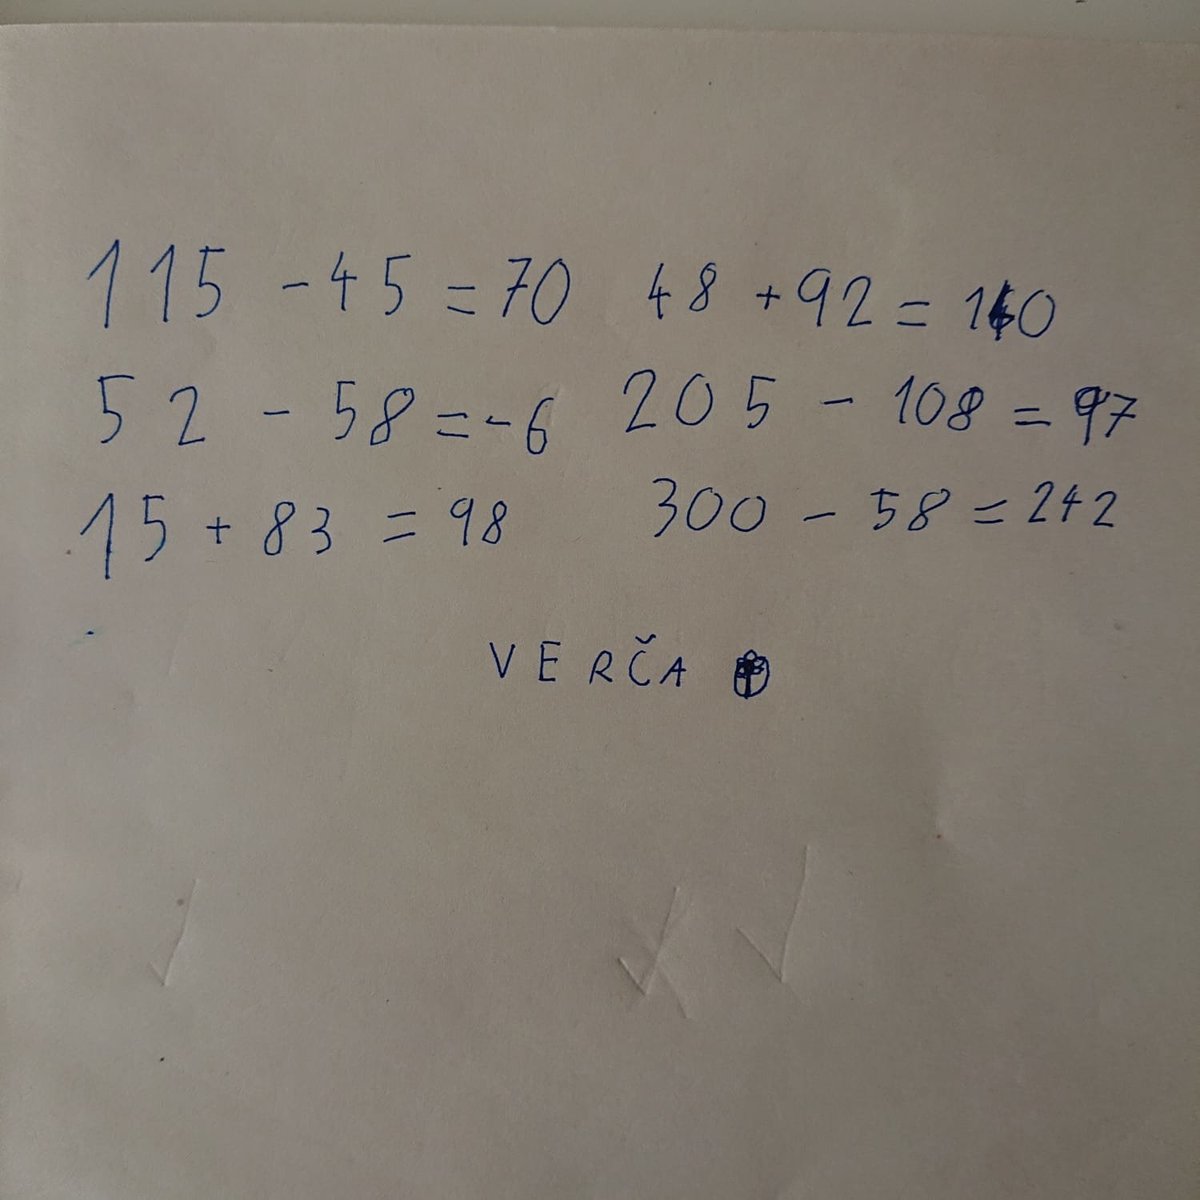 115 - 45 = 70 48 + 92 = 140
52 - 58 = -6 205 - 108 = 97
15 + 83 = 98 300 - 58 = 242
VERČA